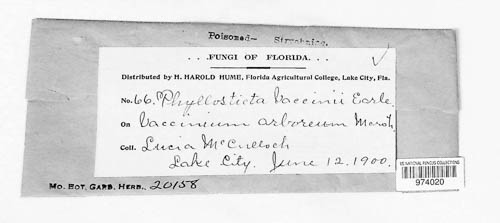 Poisoned- Strychnine.
. . .FUNGI OF FLORIDA. . . .
Distributed by H. HAROLD HUME, Florida Agricultural College, Lake City, Fla.
No. 66. Phyllosticta Vaccinii Earle.
On Vaccinium arboreum Marsh
Coll. Lucia McCulloch
Lake City, June 12, 1900.
US NATIONAL FUNGUS COLLECTIONS
974020
MO. BOT. GARD. HERB., 20158